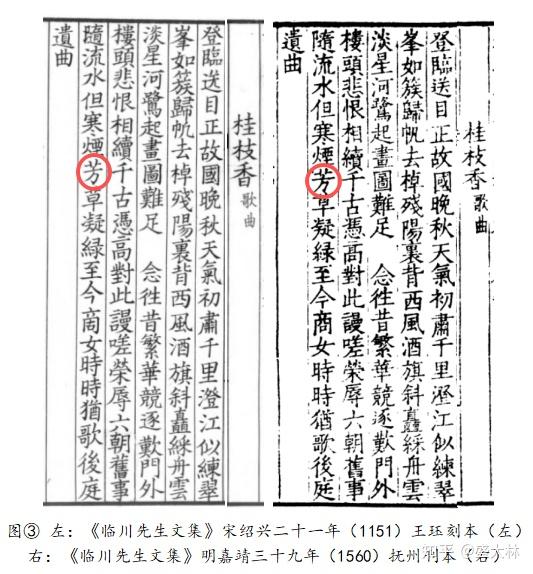 桂枝香 歌曲
登臨送目正故國晚秋天氣初肅千里澄江似練翠
峯如簇歸帆去棹殘陽裏背西風酒旗斜矗綵舟雲
淡星河鷺起畫圖難足 念徃昔繁華競逐歎門外
樓頭悲恨相續千古憑高對此謾嗟榮辱六朝舊事
隨流水但寒煙芳草凝緑至今商女時時猶歌後庭
遺曲
桂枝香 歌曲
登臨送目正故國晚秋天氣初肅千里澄江似練翠
峯如簇歸帆去棹殘陽裏背西風酒旗斜矗綵舟雲
淡星河鷺起畫圖難足 念徃昔繁華競逐歎門外
樓頭悲恨相續千古憑高對此謾嗟榮辱六朝舊事
隨流水但寒煙芳草凝緑至今商女時時猶歌後庭
遺曲
图③ 左：《临川先生文集》宋绍兴二十一年（1151）王珏刻本（左）
右：《临川先生文集》明嘉靖三十九年（1560）抚州刊本（右）
知乎 @盛大林